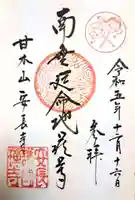 奉拝
令和五年十二月十六日
南無延命地蔵尊
甘木山
安長寺